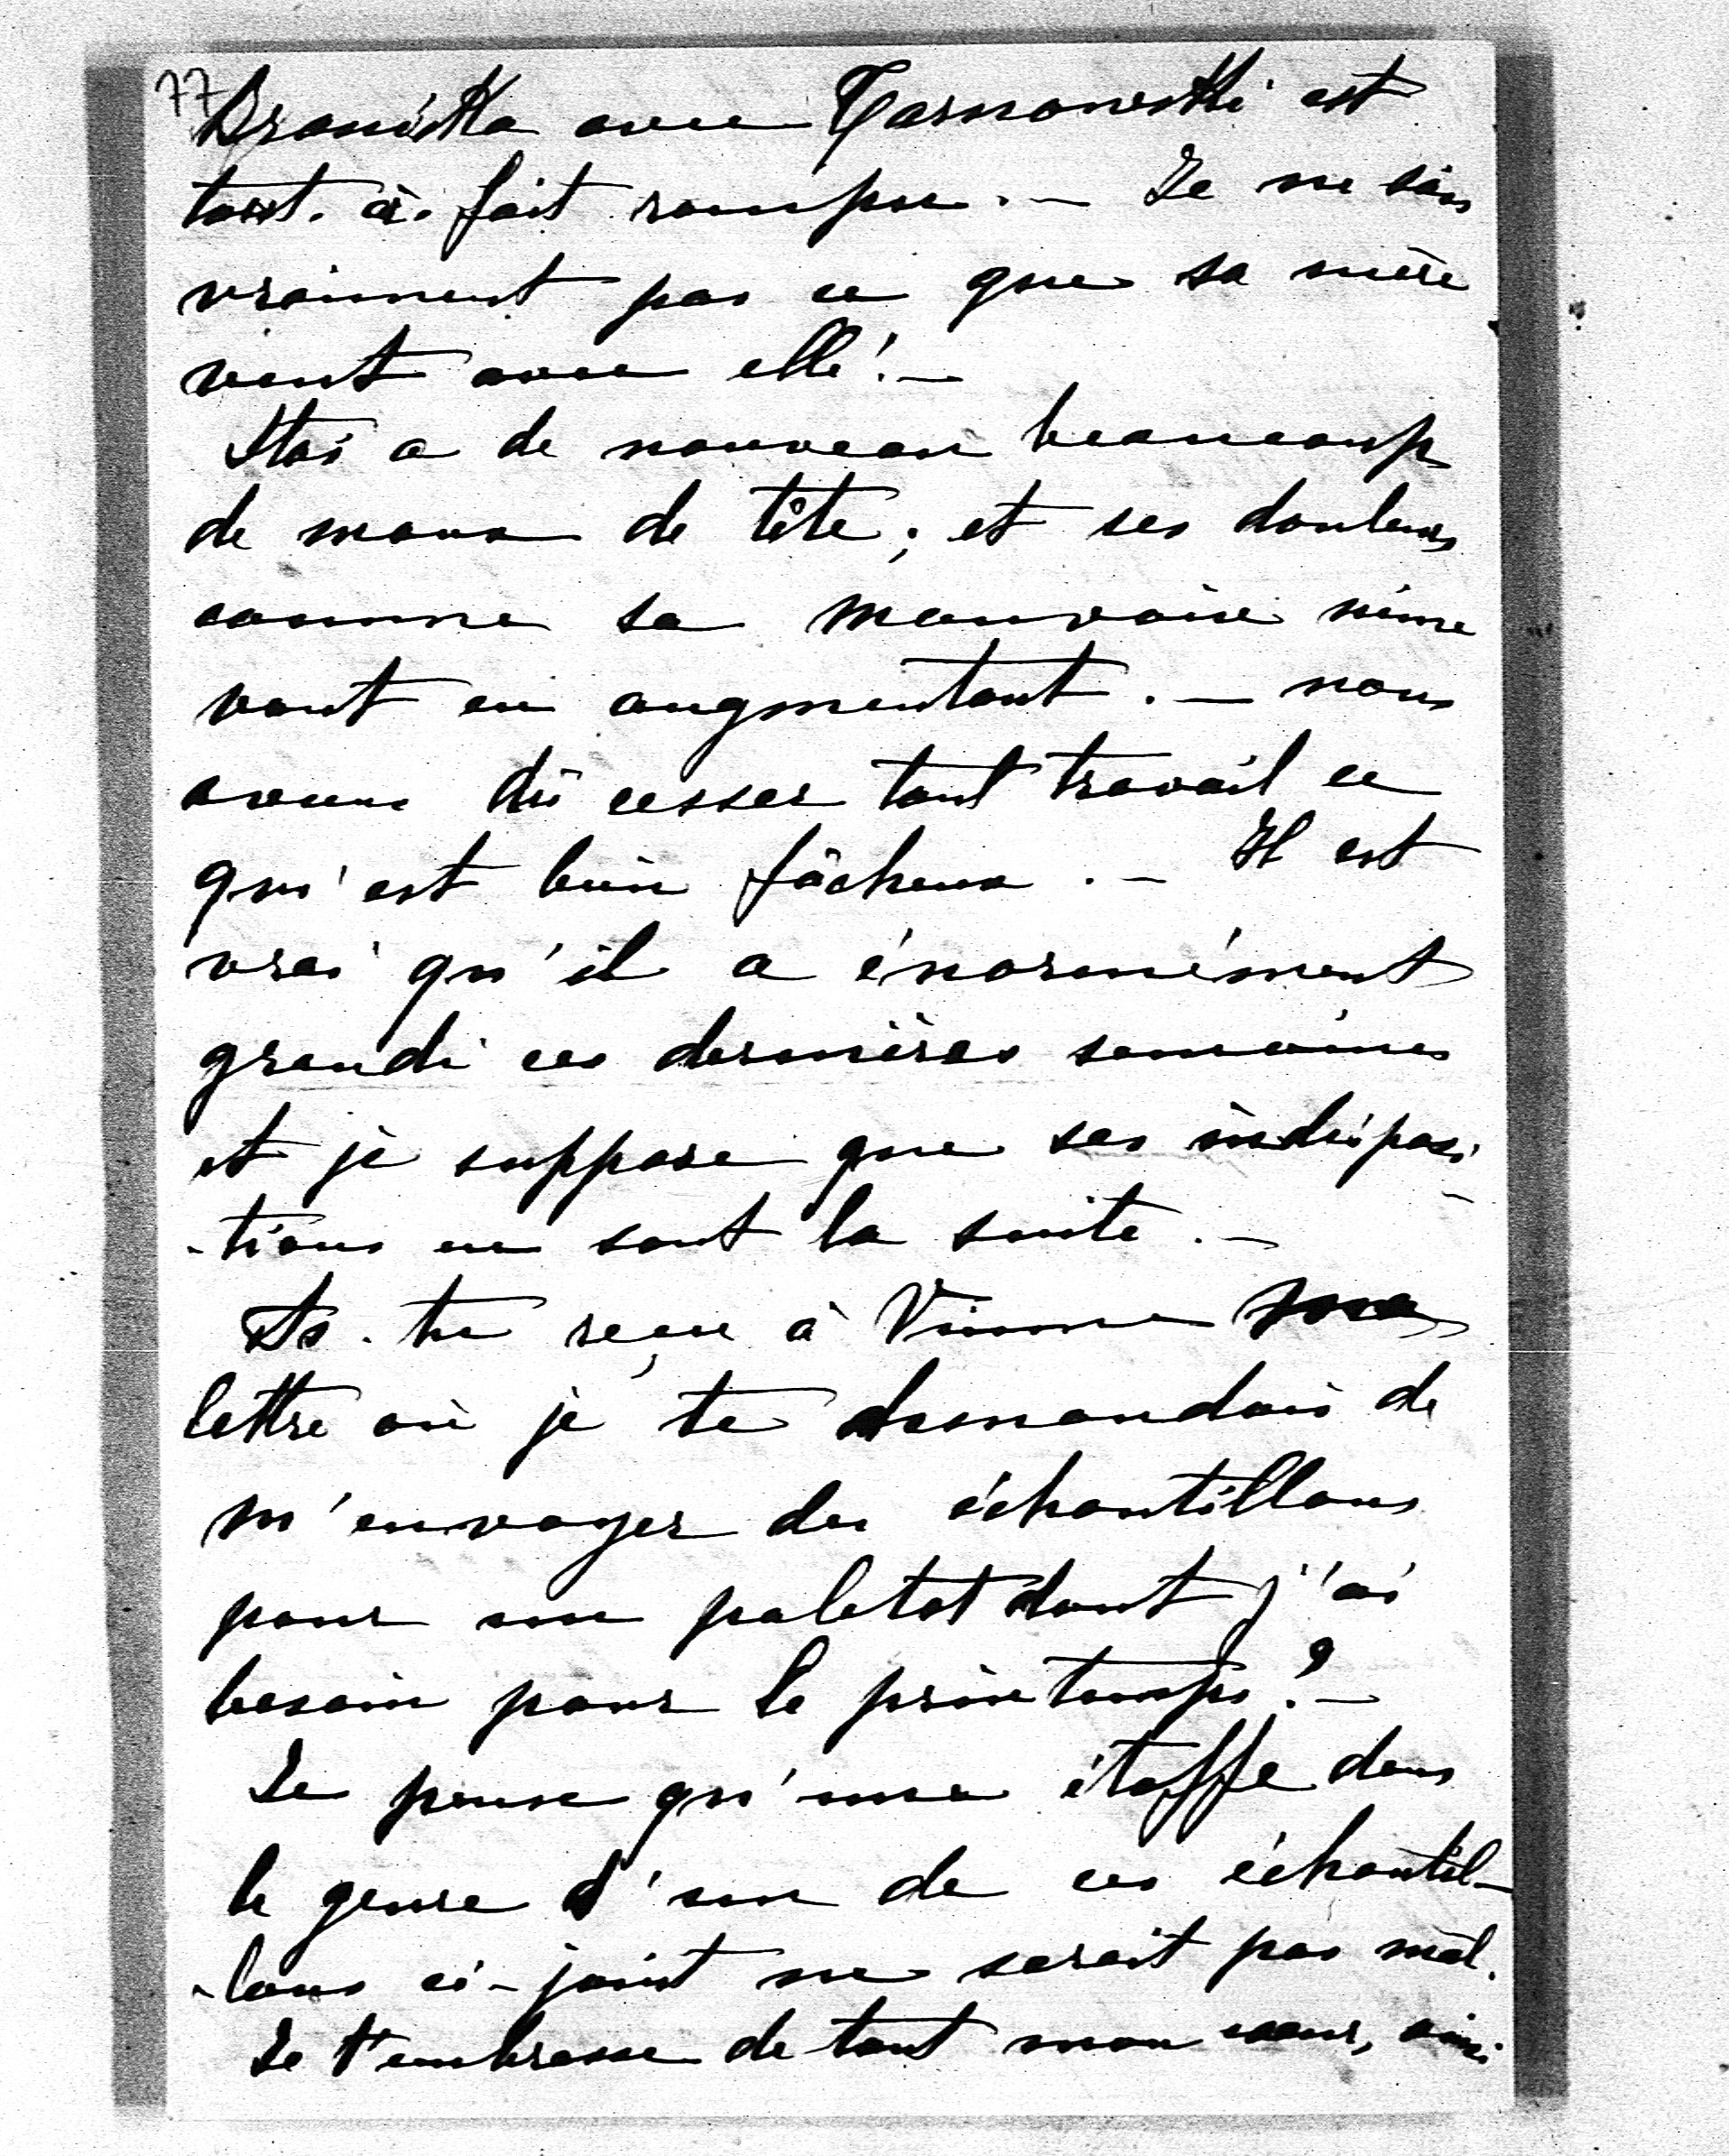 77
Braniska avec Tarnowski est
tout-à-fait rompu. — Je ne sais
vraiment pas ce que sa mère
veut avec elle! —
Stas a de nouveau beaucoup
de maux de tête; et ses douleurs
comme sa mauvaise mine
vont en augmentant. — nous
avons dû cesser tout travail ce
qui est bien fâcheux. — Il est
vrai qu'il a énormément
grandi ces dernières semaines
et je suppose que ses indisposi-
-tions en sont la suite. —
As-tu reçu à Vienne ma
lettre où je te demandais de
m'envoyer des échantillons
pour un paletot dont j'ai
besoin pour le printemps? —
Je pense qu'une étoffe dans
le genre d'un de ces échantil-
-lons ci-joint ne serait pas mal.
Je t'embrasse de tout mon coeur, ainsi